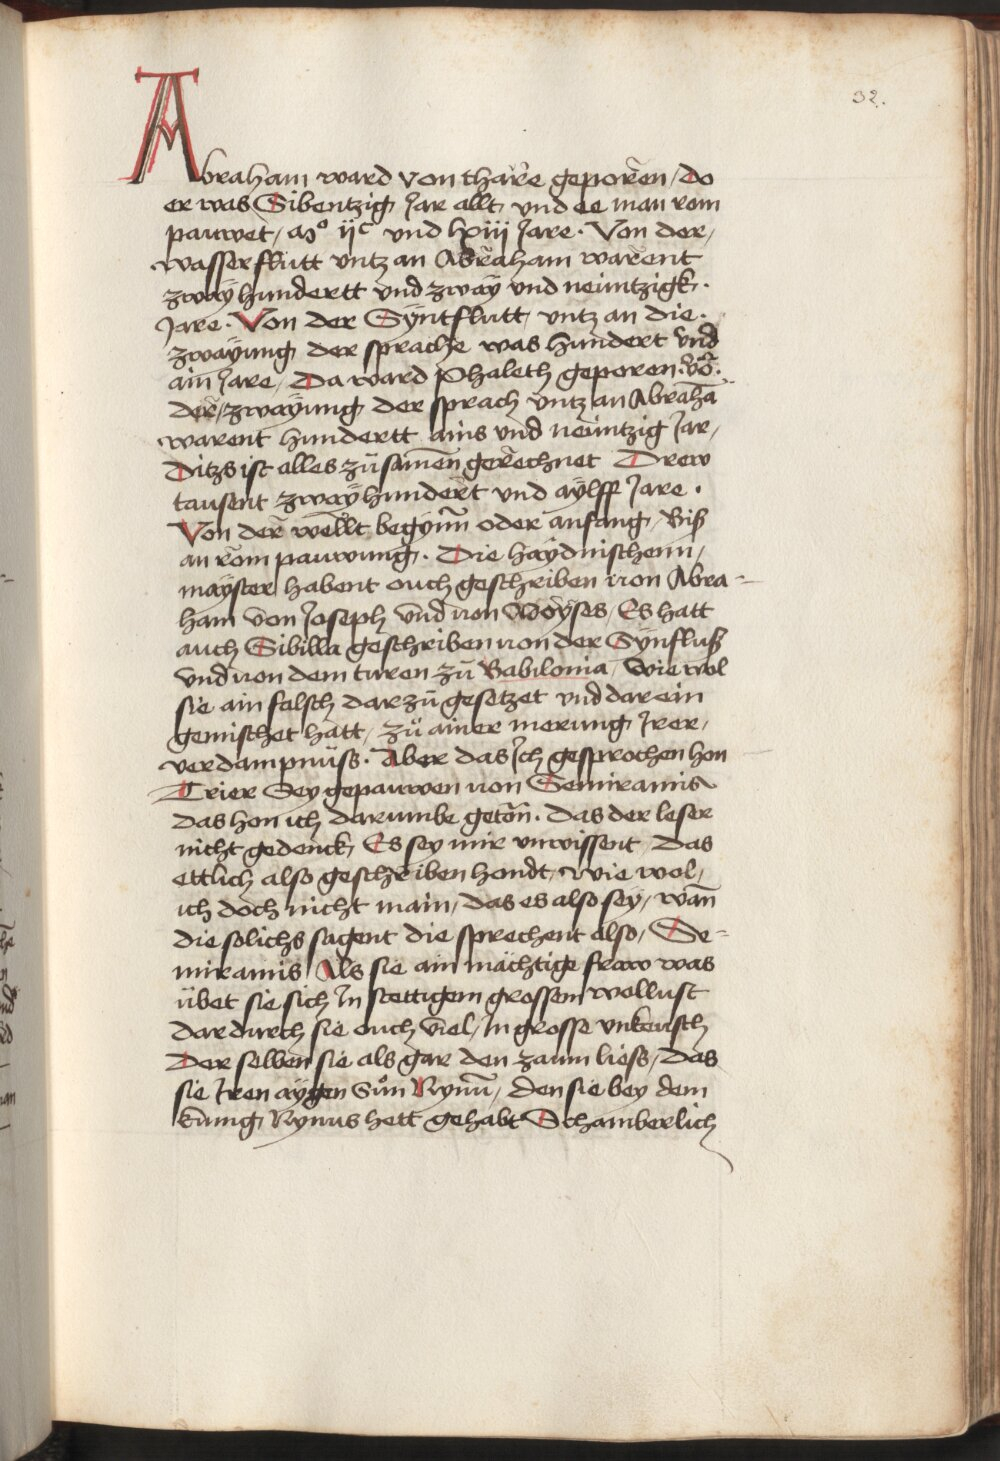 32.
Abraham ward von thare geporen / Do
er was Sibentzig Jar allt, vnd ee man rom
pauwet / mº ijᶜ vnd lxiij Jare · Von der /
wasserflutt vntz an Abraham warent
zwaÿ hundertt vnd zwaÿ vnd neüntzigk ·
Jare · Von der Sÿntflutt, vntz an die ·
zwaÿung der sprache was hundert vnd
ain Jare / Da ward Phaleth geporen · võ
der / zwaÿung der sprach vntz an Abrahã
warent hundertt ains vnd neüntzig Jar /
Ditzs ist alles zů samen gerechnet Drew
tausent zwaÿ hundert vnd aÿlff Jare ·
Von der wellt begÿnn̄ oder anfang / Biß
an rom pauwung · Die haÿdnischenn /
maÿster habent ouch geschriben von Abra=
ham von Joseph vnd von Moÿses / Es hatt
auch Sibilla geschriben von der Sÿnfluß
vnd von dem turen zů Babilonia / wie wol
sie ain falsch darzů gesetzet vnd darein
gemischet hatt / zů ainer merung Irer /
verdampnüss · Aber das Ich gesprochen hon
Trier Sey gepauwen von Semiramis
das hon ich darumbe getōn · das der leser
nicht gedenck Es sey mir vnwissent Das
ettlich also geschriben hondt / wie wol /
ich doch nicht main / das es also sey / wañ
die solichs sagent die sprechent also / Se=
miramis Als sie ain mächtige fraw was
übet sie sich In stettigem grossem wollust
dardurch sie ouch viel / In grosse vnkeusch
Der selben sie als gar den zaum liess / Das
sie Iren aÿgen Sůn Nynū / den sie bey dem
künig Nynus hett gehabt Schamberlich